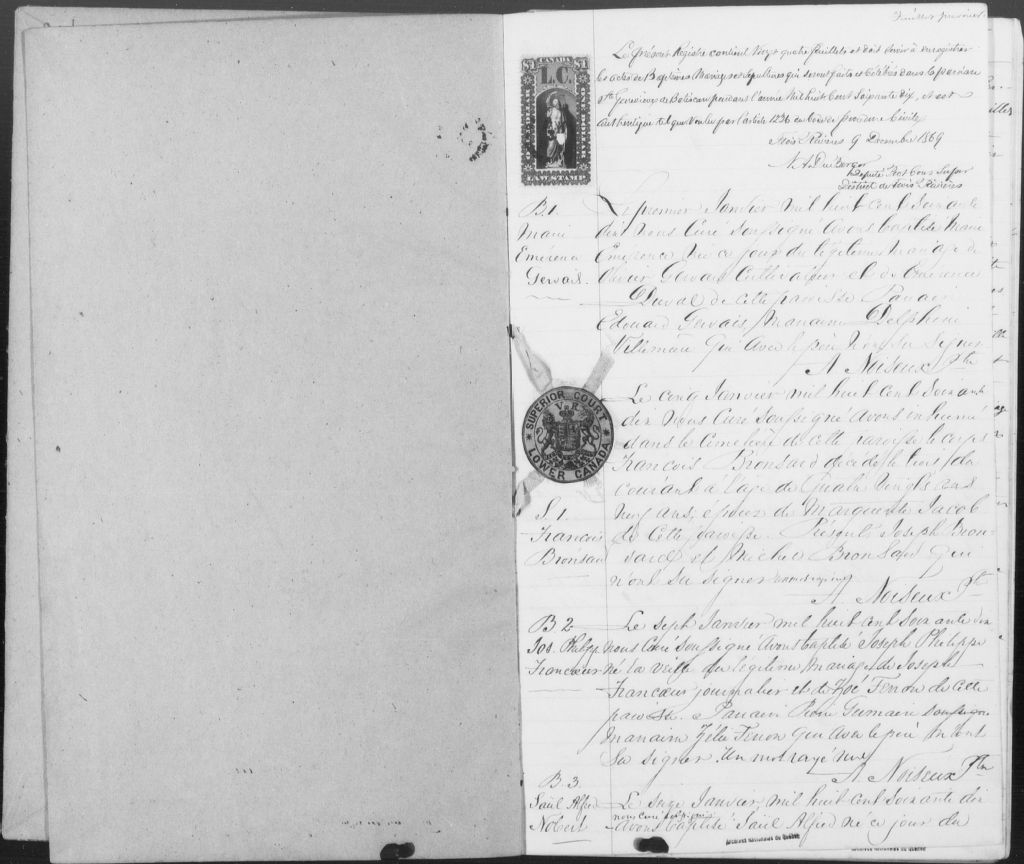 Feuillet premier
Le présent Registre contient Vingt quatre feuillets et doit servir à enregistrer
les actes de Baptêmes Mariages et Sépultures qui seront faits et célébrés dans la paroisse
Ste Geneviève de Batiscan pendant l'année Mil huit Cent Soixante dix, et est
authentique tel que voulu par l'article 1236 du Code de procédure Civile
Trois Rivières 9 Décembre 1869
Député Prot Cour Supér
District de Trois Rivières
CANADA
$1 $1
L.C.
LAW STAMP
B. 1.
Marie
Emérence
Gervais.
Le premier Janvier mil huit cent soixante
dix nous Curé soussigné avons baptisé Marie
Emérence née ce jour du légitime mariage de
Olivier Gervais Cultivateur et de
Duval de cette paroisse Parrain
Edouard Gervais, Marraine Delphine
Villemure qui avec le père n'ont su signer
A Noiseux Ptre
SUPERIOR COURT
V R
LOWER CANADA
S. 1.
Francois
Bronsard
Le cinq Janvier mil huit cent soixante
dix nous Curé soussigné avons inhumé
dans le cimetière de cette paroisse le corps
François Bronsard décédé le trois du
courant à l'age de Quatre Vingts ans
neuf ans, epoux de Marguerite Jacob
de cette paroisse. Présents Joseph Bron-
sard et Michel Bronsard qui
n'ont su signer
A. Noiseux Pt
B. 2
Jos. Philipe
Francœur
Le sept Janvier mil huit cent soixante dix
nous Curé soussigné avons baptisé Joseph Philippe
né la veille du légitime mariage de Joseph
Francœur journalier et de Zoé Feron de cette
paroisse. Parrain Pierre Germain
Marraine Zélie Feron qui avec le père n'ont
su signer. Un mot rayé nul
A Noiseux Ptre
B. 3.
Saül Alfred
Nobert
Le seize Janvier, mil huit cent soixante dix
nous curé soussigné
avons baptisé Saül Alfred né ce jour du
Archives Nationales du Québec
Archives Nationales du Québec